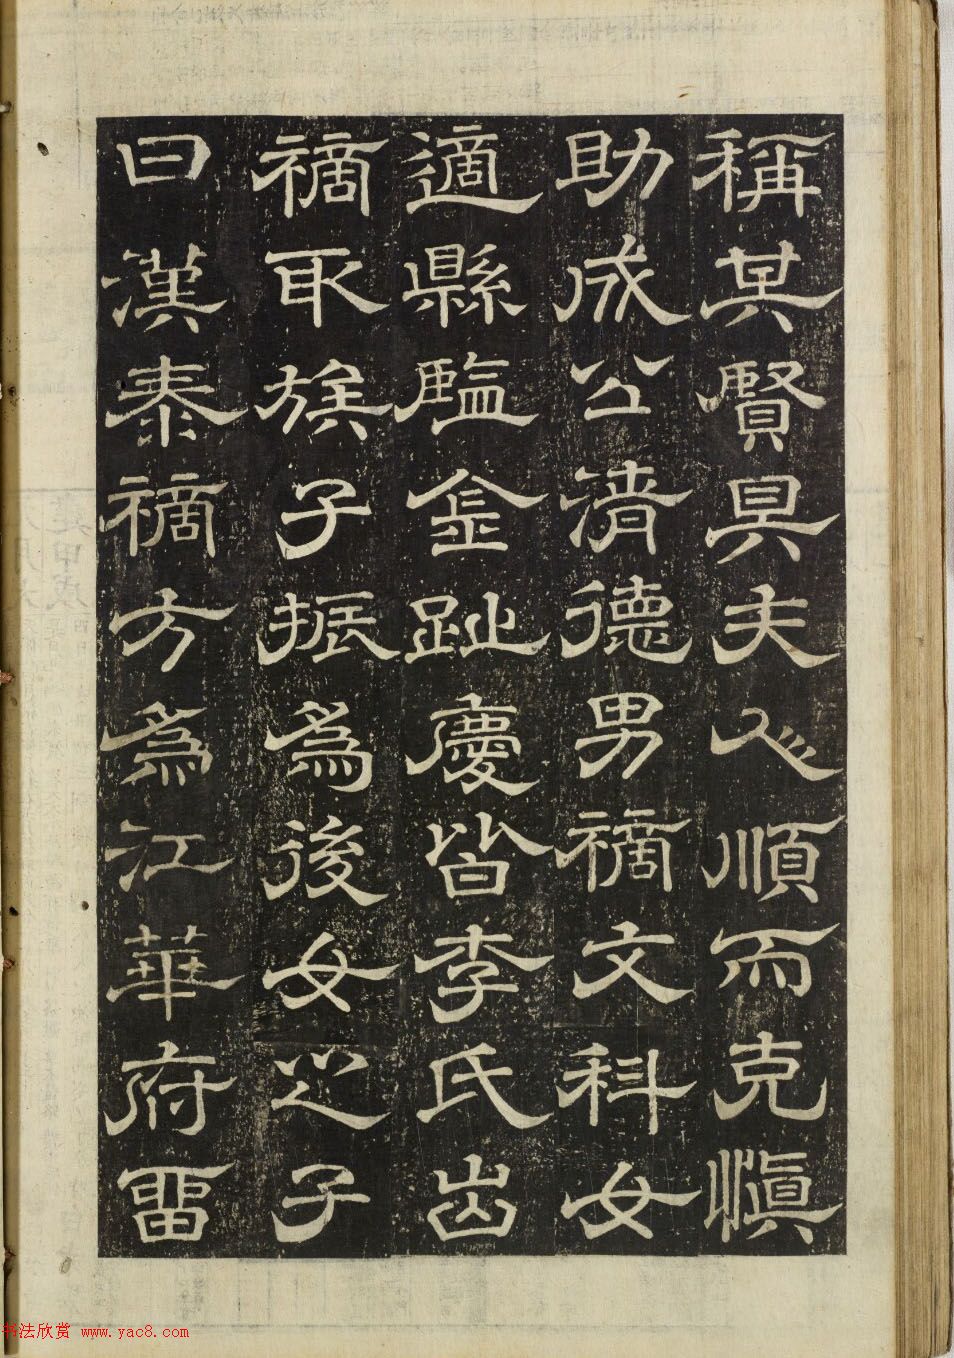 稱其賢具夫人順而克慎
助成公清德男禘文科女
適縣監金趾慶皆李氏出
禘取族子振為後女之子
曰漢泰禘方為江華府留
书法欣赏 www.yac8.com